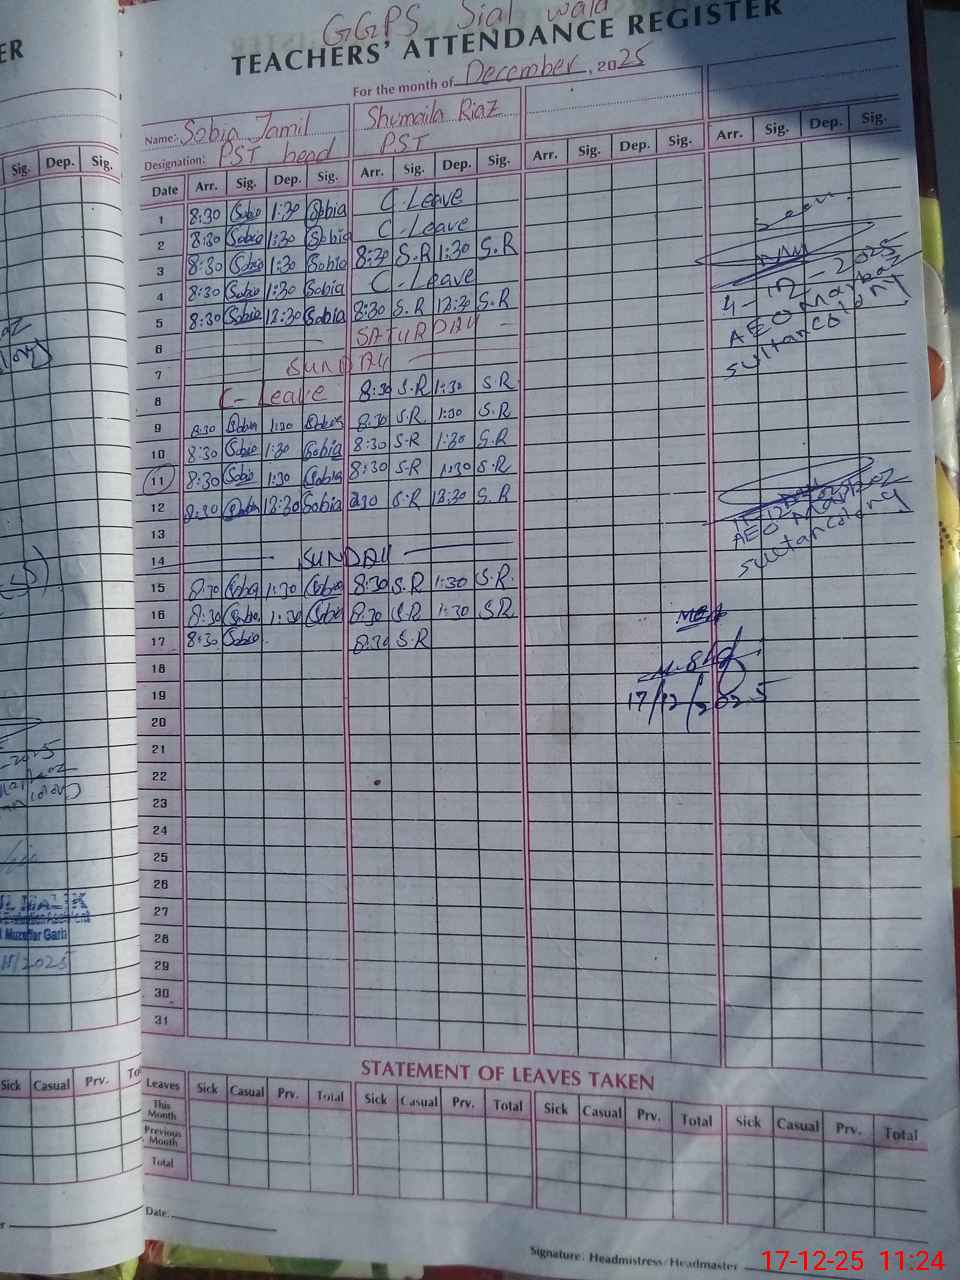 GGPS Sial wala
TEACHERS' ATTENDANCE REGISTER
For the month of December, 2025
Name:- Sobia Jamil Shumaila Riaz
Designation: PST head PST
Date Arr. Sig. Dep. Sig. Arr. Sig. Dep. Sig. Arr. Sig. Dep. Sig. Arr. Sig. Dep. Sig.
1 8:30 Sobia 1:30 Sobia C-Leave
2 8:30 Sobia 1:30 Sobia C-Leave
3 8:30 Sobia 1:30 Sobia 8:30 S.R 1:30 S.R
4 8:30 Sobia 1:30 Sobia C-Leave
5 8:30 Sobia 12:30 Sobia 8:30 S.R 12:30 S.R
6 SATURDAY
7 SUNDAY
8 C-Leave 8:30 S.R 1:30 S.R
9 8:30 Sobia 1:30 Sobia 8:30 S.R 1:30 S.R
10 8:30 Sobia 1:30 Sobia 8:30 S.R 1:30 S.R
11 8:30 Sobia 1:30 Sobia 8:30 S.R 1:30 S.R
12 8:30 Sobia 12:30 Sobia 8:30 S.R 12:30 S.R
13
14 SUNDAY
15 8:30 Sobia 1:30 Sobia 8:30 S.R 1:30 S.R
16 8:30 Sobia 1:30 Sobia 8:30 S.R 1:30 S.R
17 8:30 Sobia 8:30 S.R
18
19
20
21
22
23
24
25
26
27
28
29
30
31
Seen
4-12-2025
AEO Markaz
sultan colony
AEO Markaz
sultan colony
MEA
17/12/2025
STATEMENT OF LEAVES TAKEN
Leaves Sick Casual Prv. Total Sick Casual Prv. Total Sick Casual Prv. Total Sick Casual Prv. Total
This Month
Previous Month
Total
Date:
Signature: Headmistress/Headmaster
17-12-25 11:24
ER
Sig. Dep. Sig.
2025
Muzaffar Garh
/2025
Sick Casual Prv.